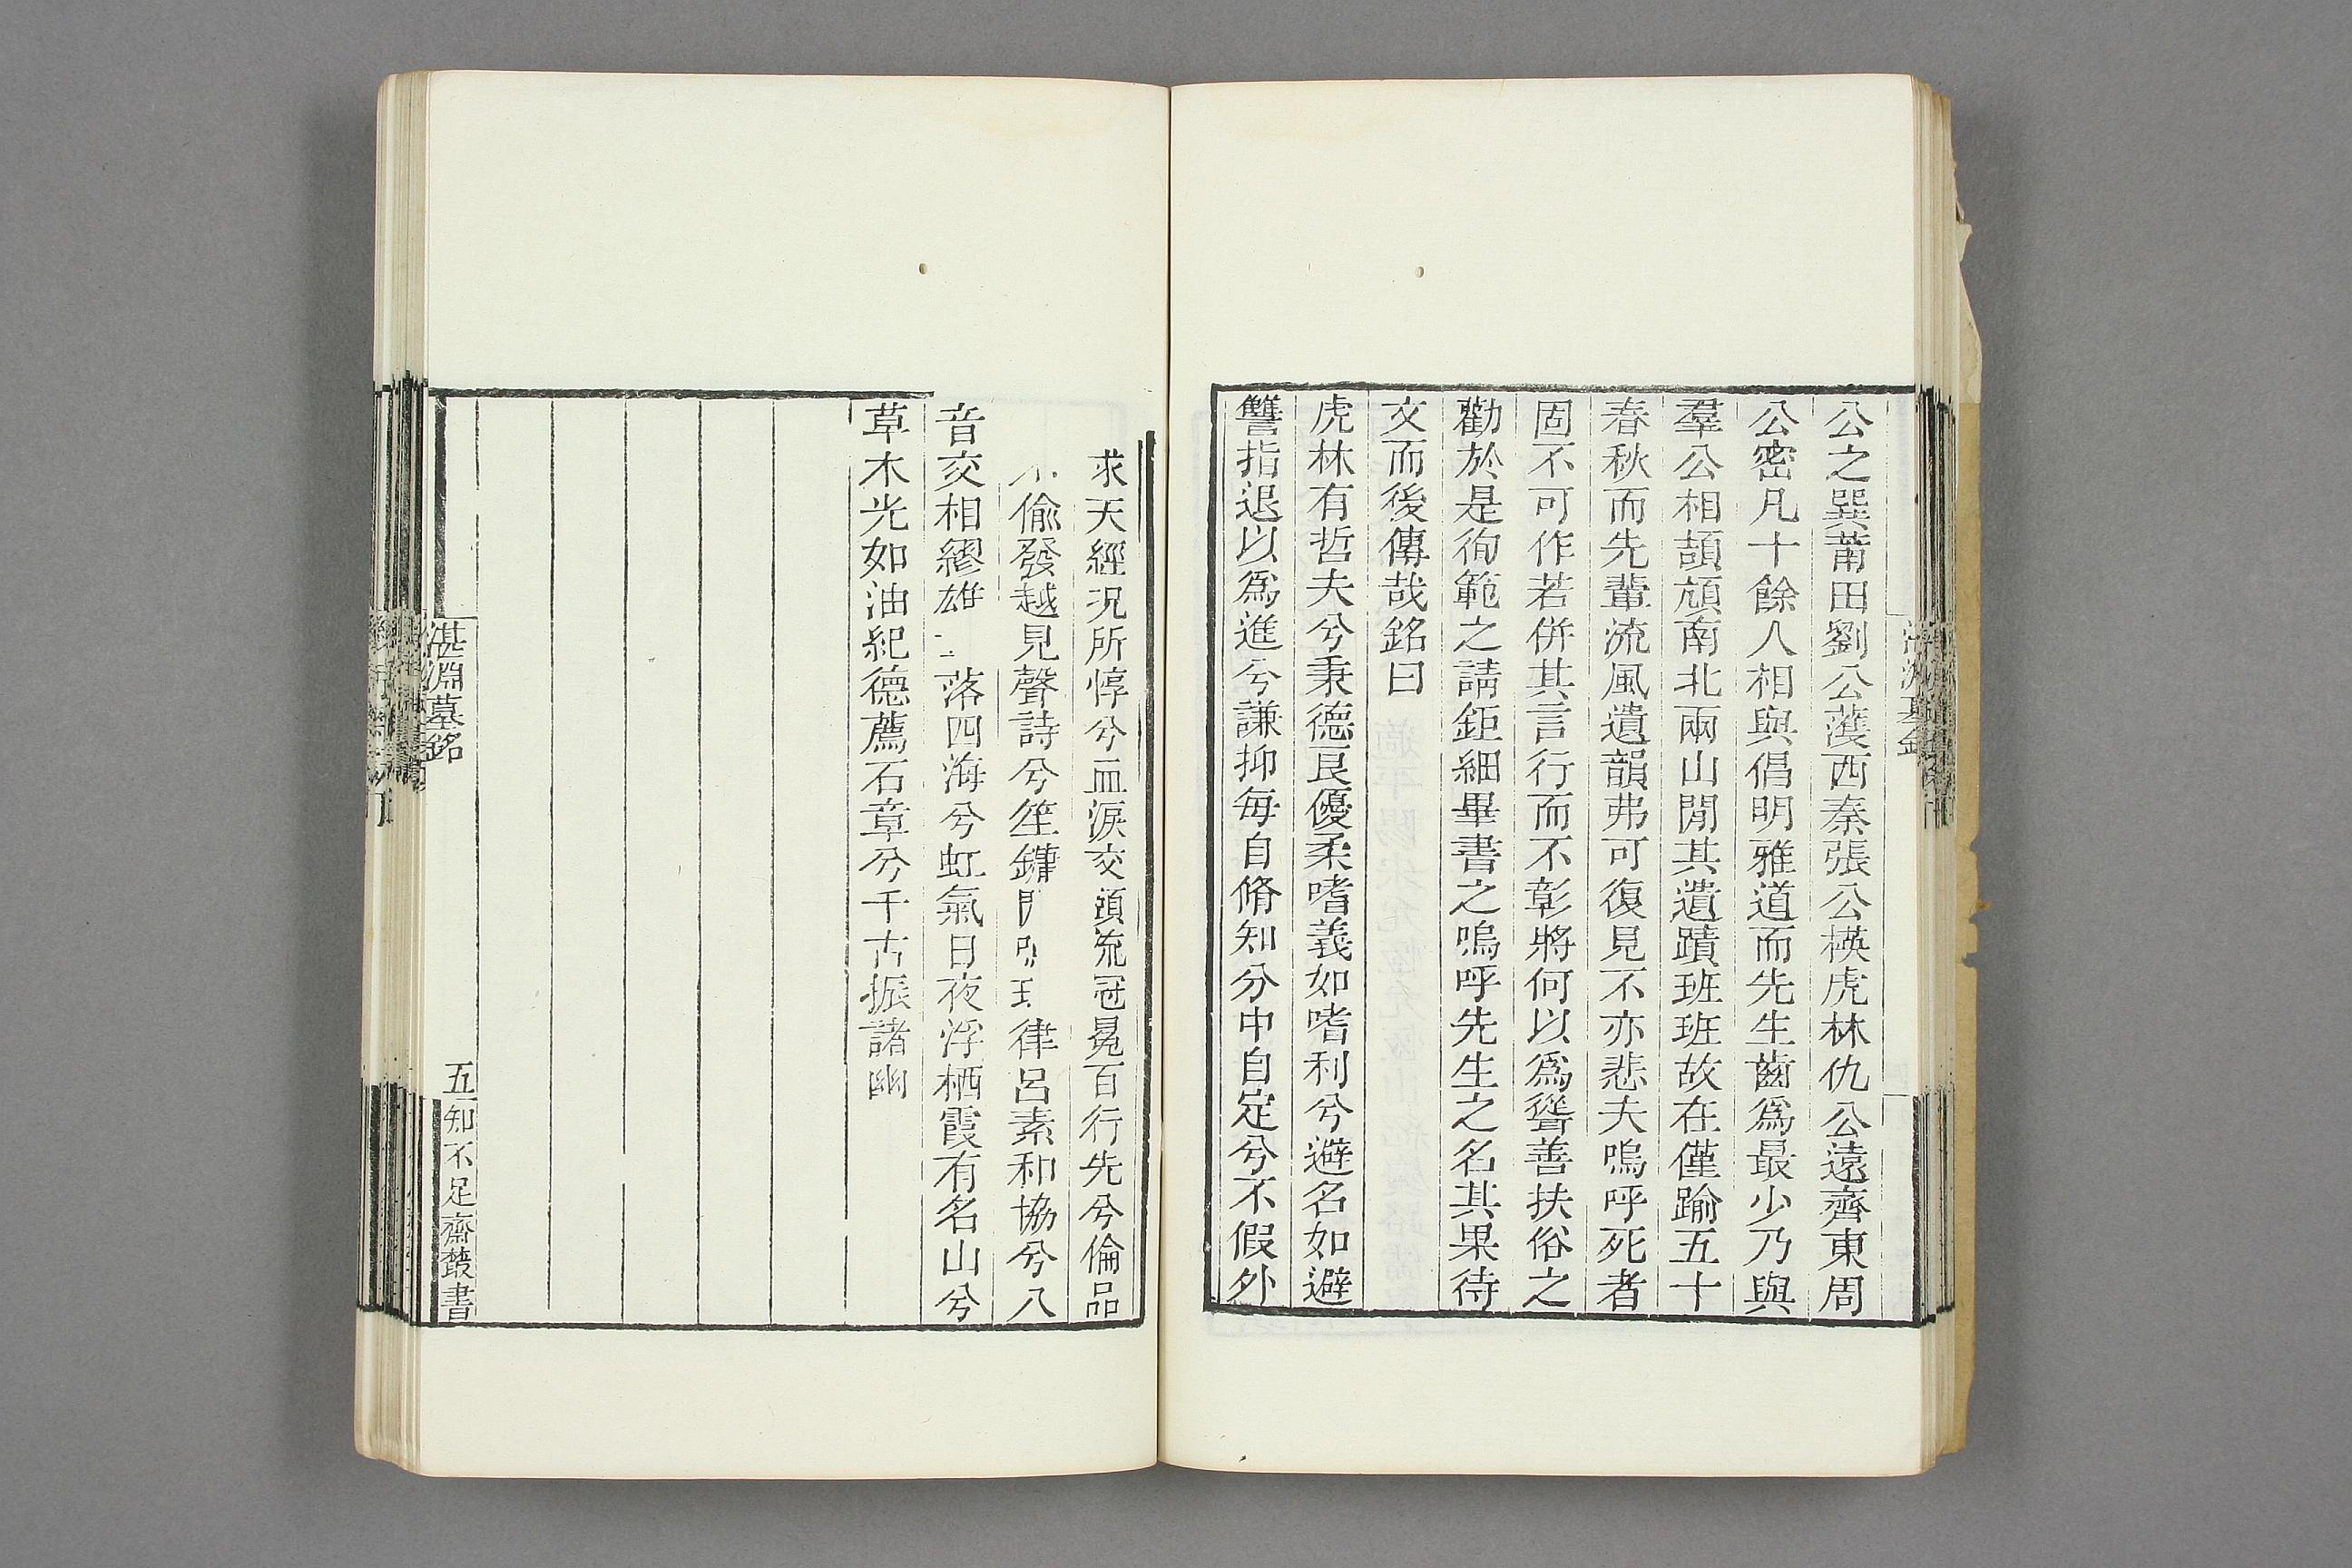 公之巽莆田劉公濩西秦張公楧虎林仇公遠齊東周
公密凡十餘人相與倡明雅道而先生齒爲最少乃與
羣公相頡頏南北兩山閒其遺蹟班班故在僅踰五十
春秋而先輩流風遺韻弗可復見不亦悲夫嗚呼死者
固不可作若併其言行而不彰將何以爲聳善扶俗之
勸於是徇範之請鉅細畢書之嗚呼先生之名其果待
文而後傳哉銘曰
虎林有哲夫兮秉德艮優柔嗜義如嗜利兮避名如避
讐指退以爲進兮謙抑每自脩知分中自定兮不假外
求天經况所惇兮血淚交頭流冠冕百行先兮倫品
偷發越見聲詩兮笙鏞律呂素和協兮八
音交相繆雄落四海兮虹氣日夜浮栖霞有名山兮
草木光如油紀德薦石章兮千古振諸幽
湛淵墓銘
五
知不足齋叢書